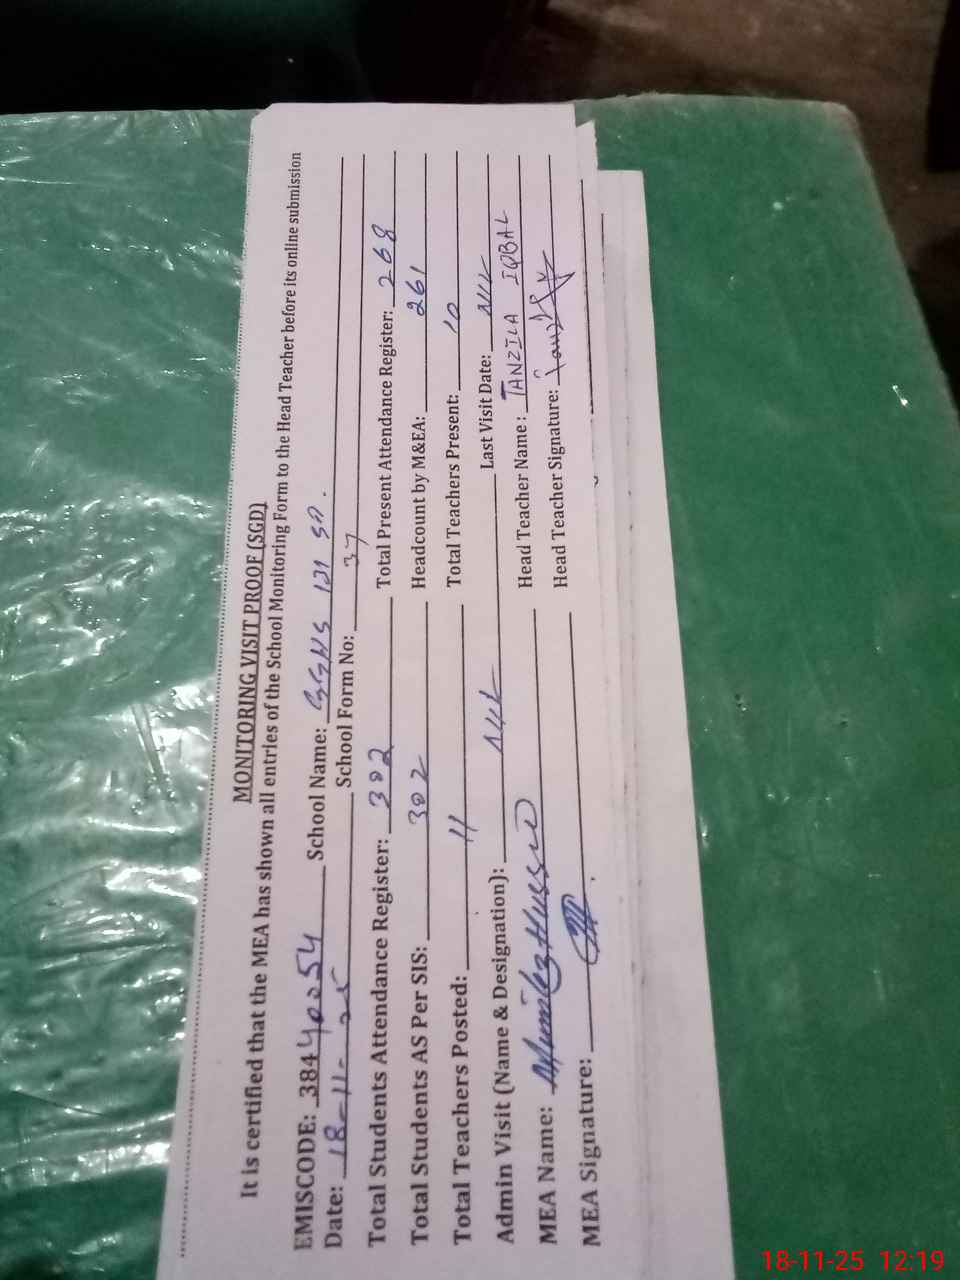 MONITORING VISIT PROOF (SGD)
It is certified that the MEA has shown all entries of the School Monitoring Form to the Head Teacher before its online submission
EMISCODE: 38440054 School Name: GGHS 131 SB.
Date: 18-11-25 School Form No: 37
Total Students Attendance Register: 302 Total Present Attendance Register: 268
Total Students AS Per SIS: 302 Headcount by M&EA: 261
Total Teachers Posted: 11 Total Teachers Present: 10
Admin Visit (Name & Designation): Nil Last Visit Date: Nil
MEA Name: Hussain Head Teacher Name : TANZILA IQBAL
MEA Signature: Head Teacher Signature:
18-11-25 12:19